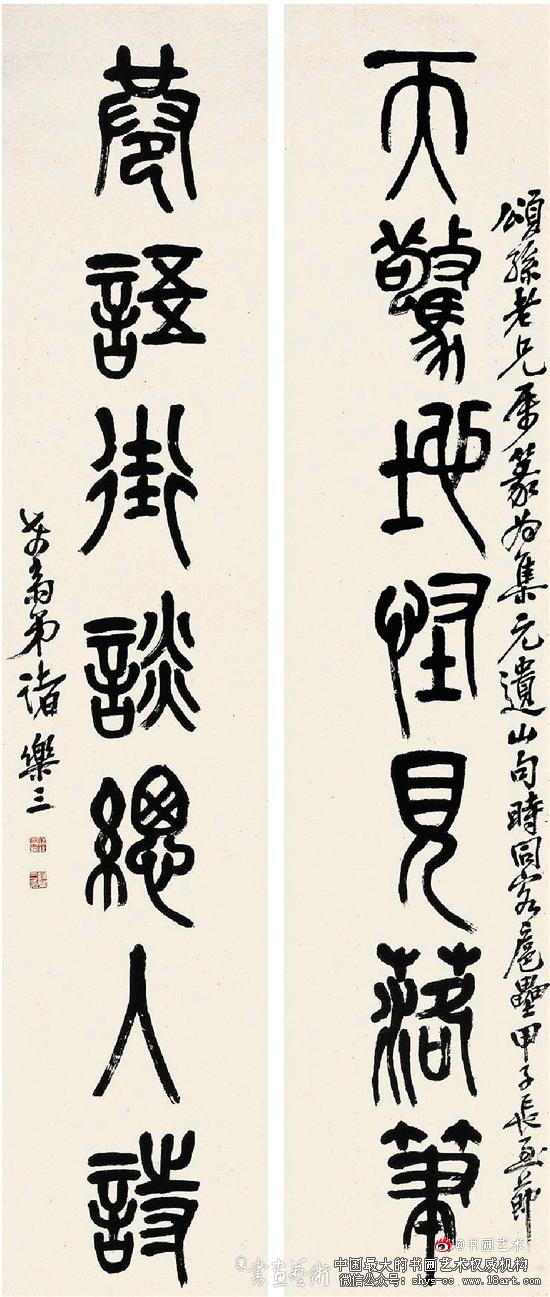 天驚地怪見落筆
頌孫老兄屬篆為集元遺山句時同客扈壘甲子長至節
巷語街談總入詩
弟諸樂三
@书画艺术
書畫藝術
中国最大的书画艺术权威机构
微信公众号: shys-cc www.18art.com